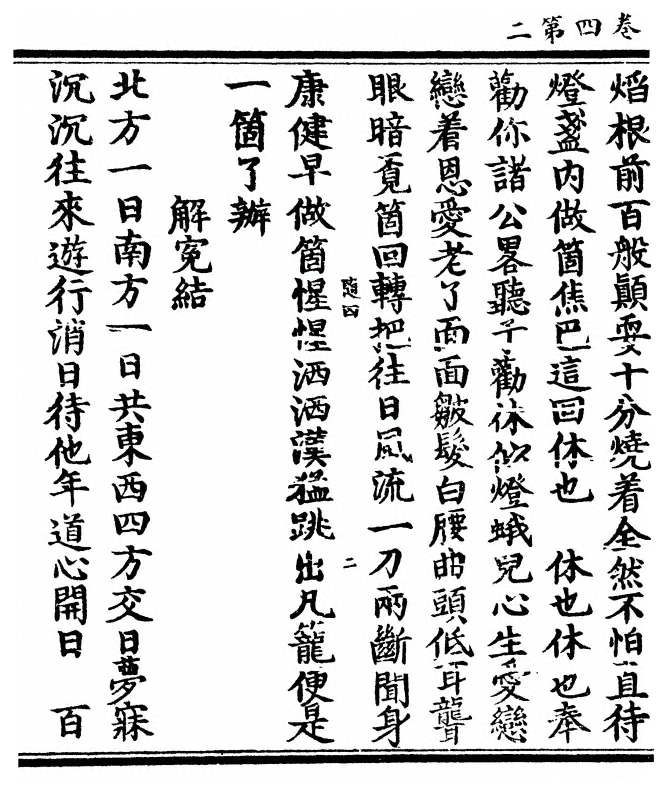 卷四第二
熖根前百般顛耍十分燒着全然不怕直待
燈盞內做箇焦巴這回休也　休也休也奉
勸你諸公畧聽予勸休似燈蛾兒心生愛戀
戀着恩愛老了面面皺髮白腰曲頭低耳聾
眼暗覔箇回轉把往日風流一刀兩斷閒身
康健早做箇惺惺洒洒漢猛跳出凡籠便是
隨四
二
一箇了辦
解寃結
北方一日南方一日共東西四方交日夢寐
沉沉往來遊行消日待他年道心開日　百